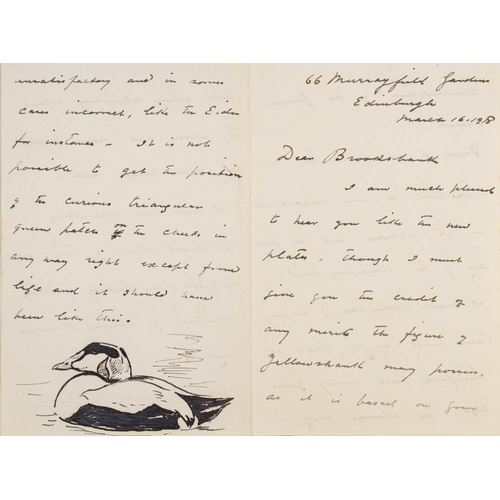 66 Murrayfield Gardens
Edinburgh
March 16 - 1918
Dear Brooksbank
I am much pleased
to hear you like the new
plates, though I must
give you the credit of
any merits the figure of
Yellowshank may possess.
as it is based on your
unsatisfactory and in some
cases incorrect, like the Eider
for instance - It is not
possible to get the position
of the curious triangular
green patch on the cheeks in
any way right except from
life and it should have
been like this.